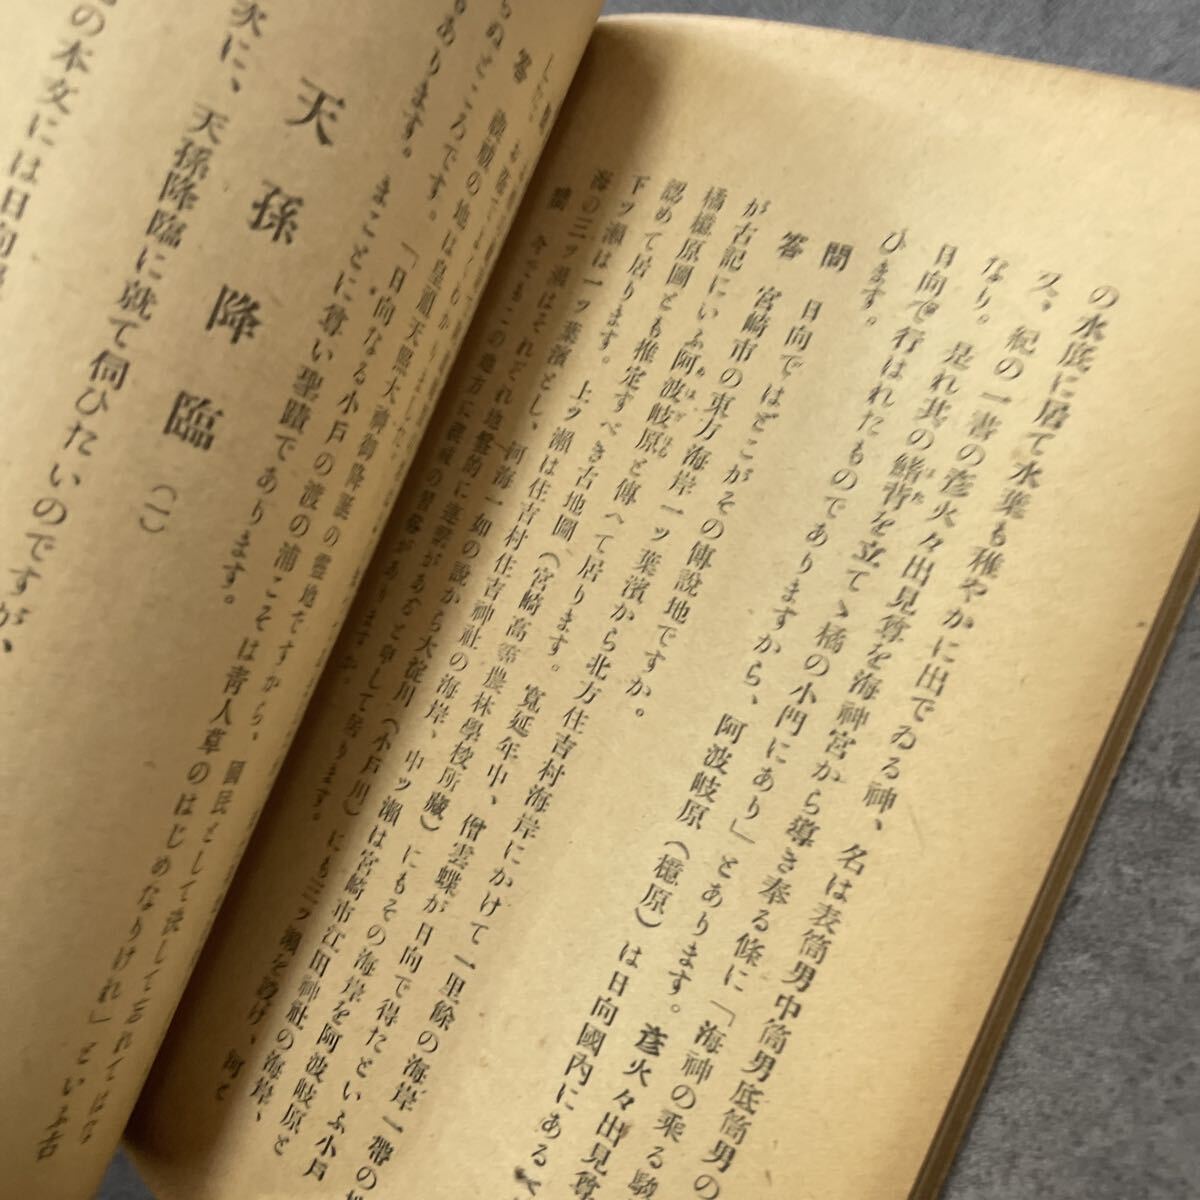 の水底に居て水葉も稚やかに出でゐる神、名は表筒男中筒男底筒男の
又、紀の一書の彦火々出見尊を海神宮から導き奉る條に「海神の乘る駿
なり。是れ其の鰭背を立てゝ橘の小門にあり」とあります。彦火々出見尊
日向で行はれたものでありますから、阿波岐原(檍原)は日向國内にある
ひます。
問 日向ではどこがその傳說地ですか。
答 宮崎市の東方海岸一ッ葉濱から北方住吉村海岸にかけて一里餘の海岸一帶の
が古記にいふ阿波岐原と傳へて居ります。寬延年中、僧雲蝶が日向で得たといふ小戸
橘檍原圖とも推定すべき古地圖(宮崎高等農林學校所藏)にもその海岸を阿波岐原と
認めて居ります。上ッ瀨は住吉村住吉神社の海岸、中ッ瀨は宮崎市江田神社の海岸、
下ッ瀨は一ッ葉濱とし、河海一如の說から大淀川(小戸川)にも三ッ瀨を設け、河と
海の三ッ瀨はそれぞれ地盤的に連繫があると申して居ります。
答
の地は皇祖天照大神御降誕の靈地ですから、國民として決して忘れてはな
らぬところです。「日向なる小戸の渡の浦こそは青人草のはじめなりけれ」といふ古
もあります。まことに尊い聖蹟であります。
天孫降臨(一)
次に、天孫降臨に就て伺ひたいのですが、
の本文には日向